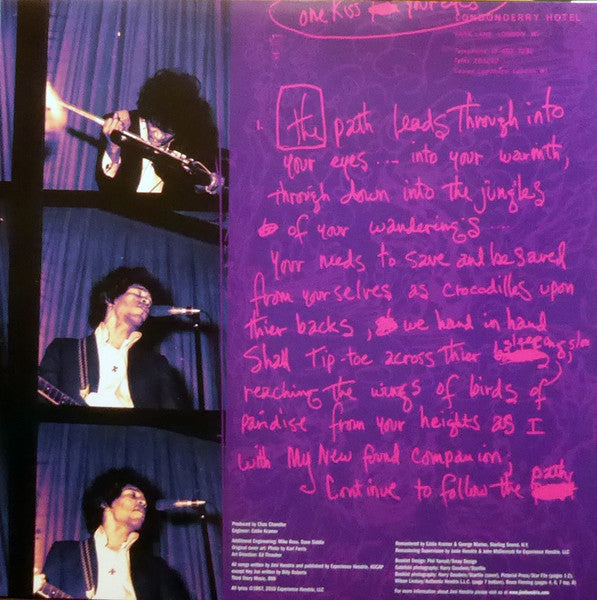 one Kiss your eyes
LONDONDERRY HOTEL
PARK LANE LONDON W1
1. The path leads Through into
your eyes.... into your warmth,
through down into the jungles
of your wandering's....
Your needs to save and be saved
from yourselves as crocodilles upon
thier backs, we hand in hand
Shall Tip-toe across thier sleeping
reaching The wings of birds of
paridise from your heights as I
with My New found companion,
Continue to follow the path
Produced by Chas Chandler
Engineer: Eddie Kramer
Additional Engineering: Mike Ross, Dave Siddle
Original cover art: Photo by Karl Ferris
Art Direction: Ed Thrasher
All songs written by Jimi Hendrix and published by Experience Hendrix, ASCAP
except Hey Joe written by Billy Roberts
Third Story Music, BMI
All lyrics ©1967, 2010 Experience Hendrix, LLC
Remastered by Eddie Kramer & George Marino, Sterling Sound, N.Y.
Remastering Supervision by Janie Hendrix & John McDermott for Experience Hendrix, LLC
Booklet Design: Phil Yarnall/Smay Design
Gatefold photographs: Harry Goodwin/Starfile
Booklet photographs: Harry Goodwin/Starfile (cover), Pictorial Press/Star File (pages 1-2),
For more information about Jimi Hendrix please visit us at www.jimihendrix.com